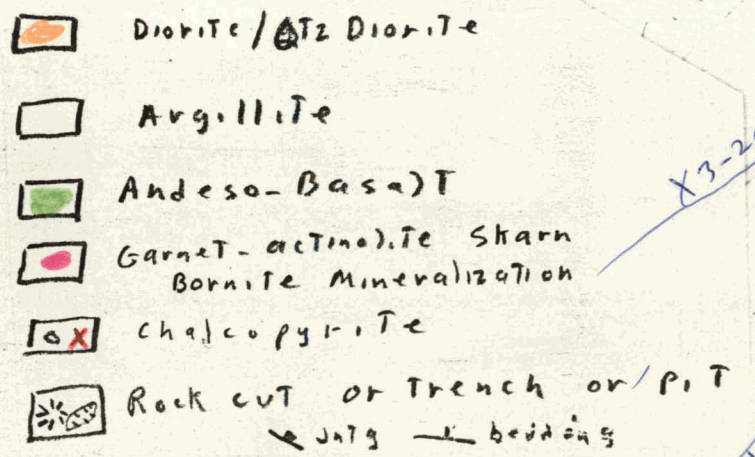 Diorite/QTz Diorite
Argillite
Andeso-Basalt
Garnet-actinolite Skarn
Bornite Mineralization
X3-2
chalcopyrite
Rock cut or Trench or/PiT
bedding